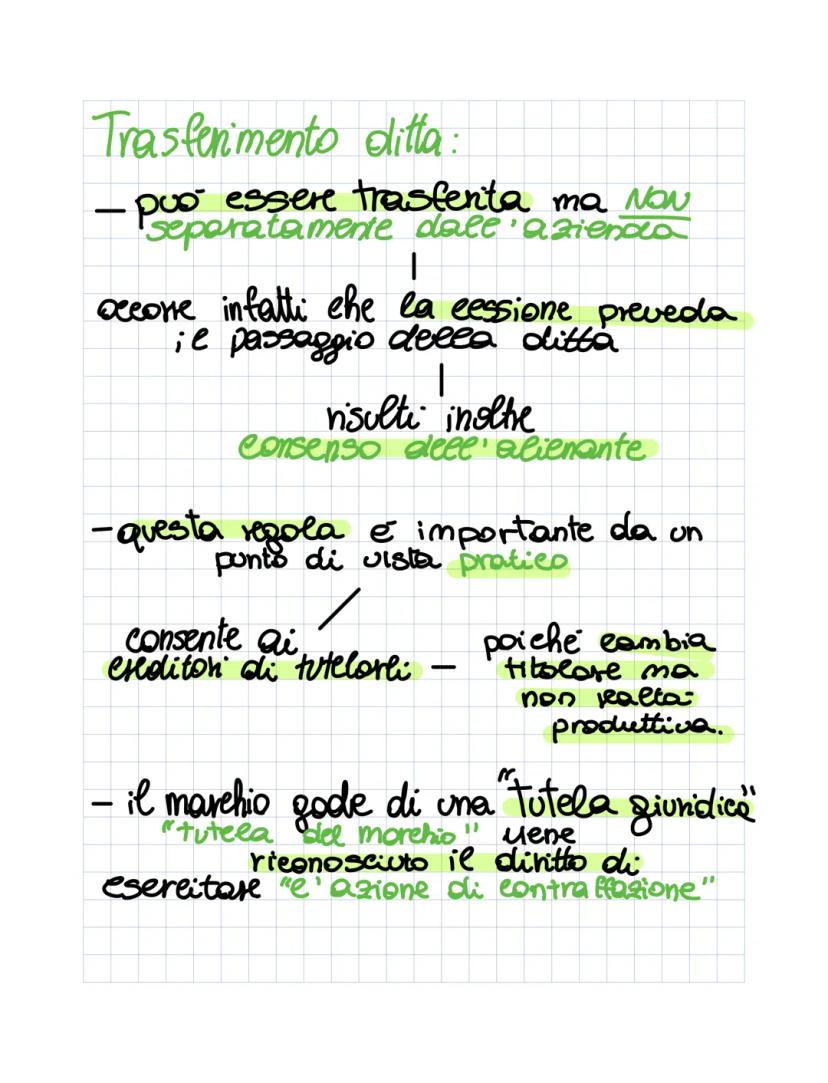 Trasferimento ditta:
- può essere trasferita ma NON
separatamente dall'azienda
occorre infatti che la cessione preveda
il passaggio della ditta
risulti inoltre
consenso dell'alienante
- questa regola è importante da un
punto di vista pratico
consente ai
creditori di tutelarli -
poiché cambia
titolare ma
non realtà
produttiva.
- il marchio gode di una "tutela giuridica"
"tutela del marchio" viene
riconosciuto il diritto di
esercitare "l'azione di contraffazione"